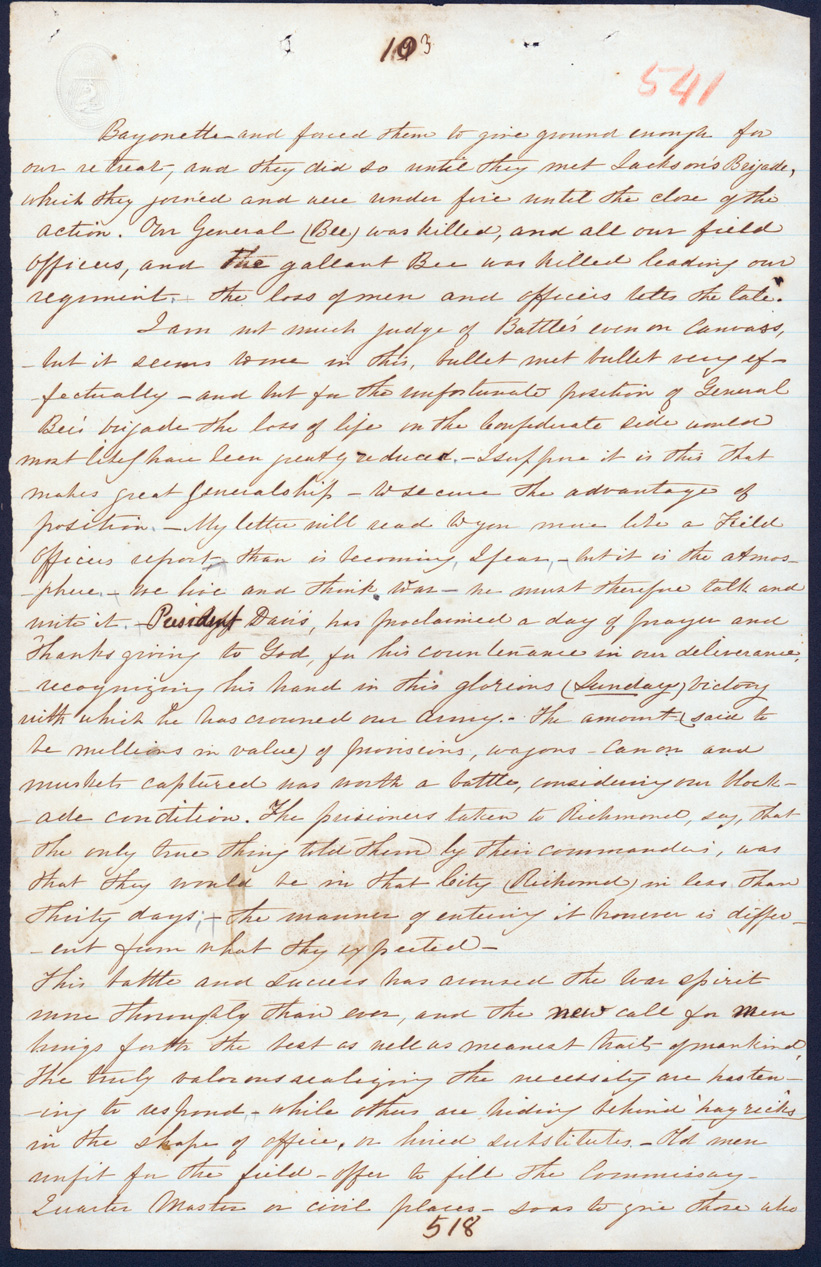 103
541
Bayonette and forced them to give ground enough for
our retreat, and they did so until they met Jackson's Brigade,
which they joined and were under fire until the close of the
action. Our General (Bee) was killed, and all our field
officers, and the gallant Bee was killed leading our
regiment. the loss of men and officers tells the tale.
I am not much judge of Battle's even on Canvass,
- but it seems to me in this, bullet met bullet very ef-
- fectually - and but for the unfortunate position of General
Bee's brigade the loss of life on the Confederate side would
most likely have been greatly reduced. - I suppose it is this that
makes great Generalship - to secure the advantage of
position. - My letter will read to you more like a Field
Officers report, than is becoming, I fear, - but it is the atmos-
- phere. - We live and think War - we must therefore talk and
write it. - President Davis, has proclaimed a day of prayer and
Thanksgiving to God, for his countenance in our deliverance,
- recognizing his hand in this glorious (Sunday) victory
with which he has crowned our army. - The amount (said to
be millions in value) of provisions, wagons - canon and
muskets captured was worth a battle, considering our block-
- ade condition. The prisoners taken to Richmond, say, that
the only true thing told them by their commanders, was
that they would be in that City (Richmond) in less than
thirty days; - the manner of entering it however is differ-
- ent from what they expected -
This battle and success has aroused the war spirit
more thoroughly than ever, and the new call for men
brings forth the best as well as meanest traits of mankind,
The truly valorous realizing the necessity are hasten-
- ing to respond - while others are hiding behind 'hay ricks'
in the shape of office, or hired substitutes. - Old men
unfit for the field - offer to fill the Commissary -
Quarter Master or civil places - so as to give those who
518